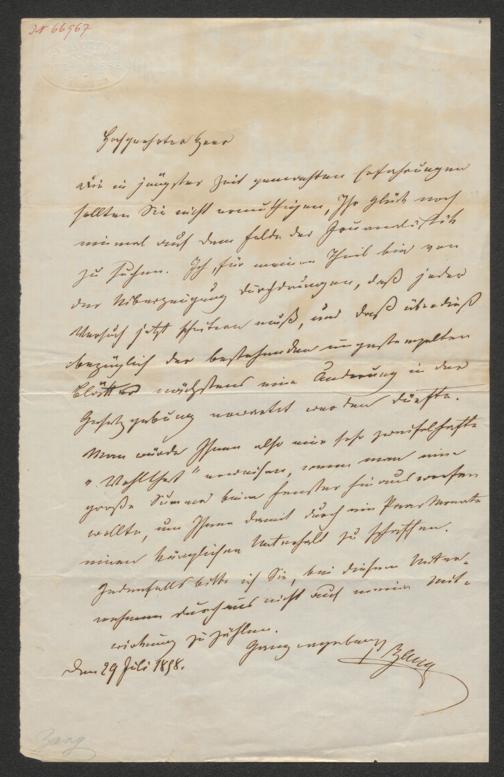 IN 66967
Hochgeehrter Herr
Die in jüngster Zeit gemachten Erfahrungen
sollten Sie nicht ermuthigen, Ihr Glück noch
einmal auf dem Felde der Journalistik
zu suchen. Ich, für meinen Theil bin von
der Überzeugung durchdrungen, daß jeder
Versuch jetzt scheitern muß, und daß überdieß
bezüglich der bestehenden ungestempelten
Blätter nächstens eine Änderung in der
Gesetzgebung erwartet werden dürfte.
Man würde Ihnen also eine sehr zweifelhafte
„Wohlthat“ erweisen, wenn man eine
große Summe beim Fenster hinauswerfen
wollte, um Ihnen damit durch ein Paar Monate
einen kärglichen Unterhalt zu schaffen.
Jedenfalls bitte ich Sie, bei diesem Unter-
nehmen durchaus nicht auf meine Mit-
wirkung zu zählen.
Ganz ergebenst
Zang
Den 29 Juli 1858.
Zang